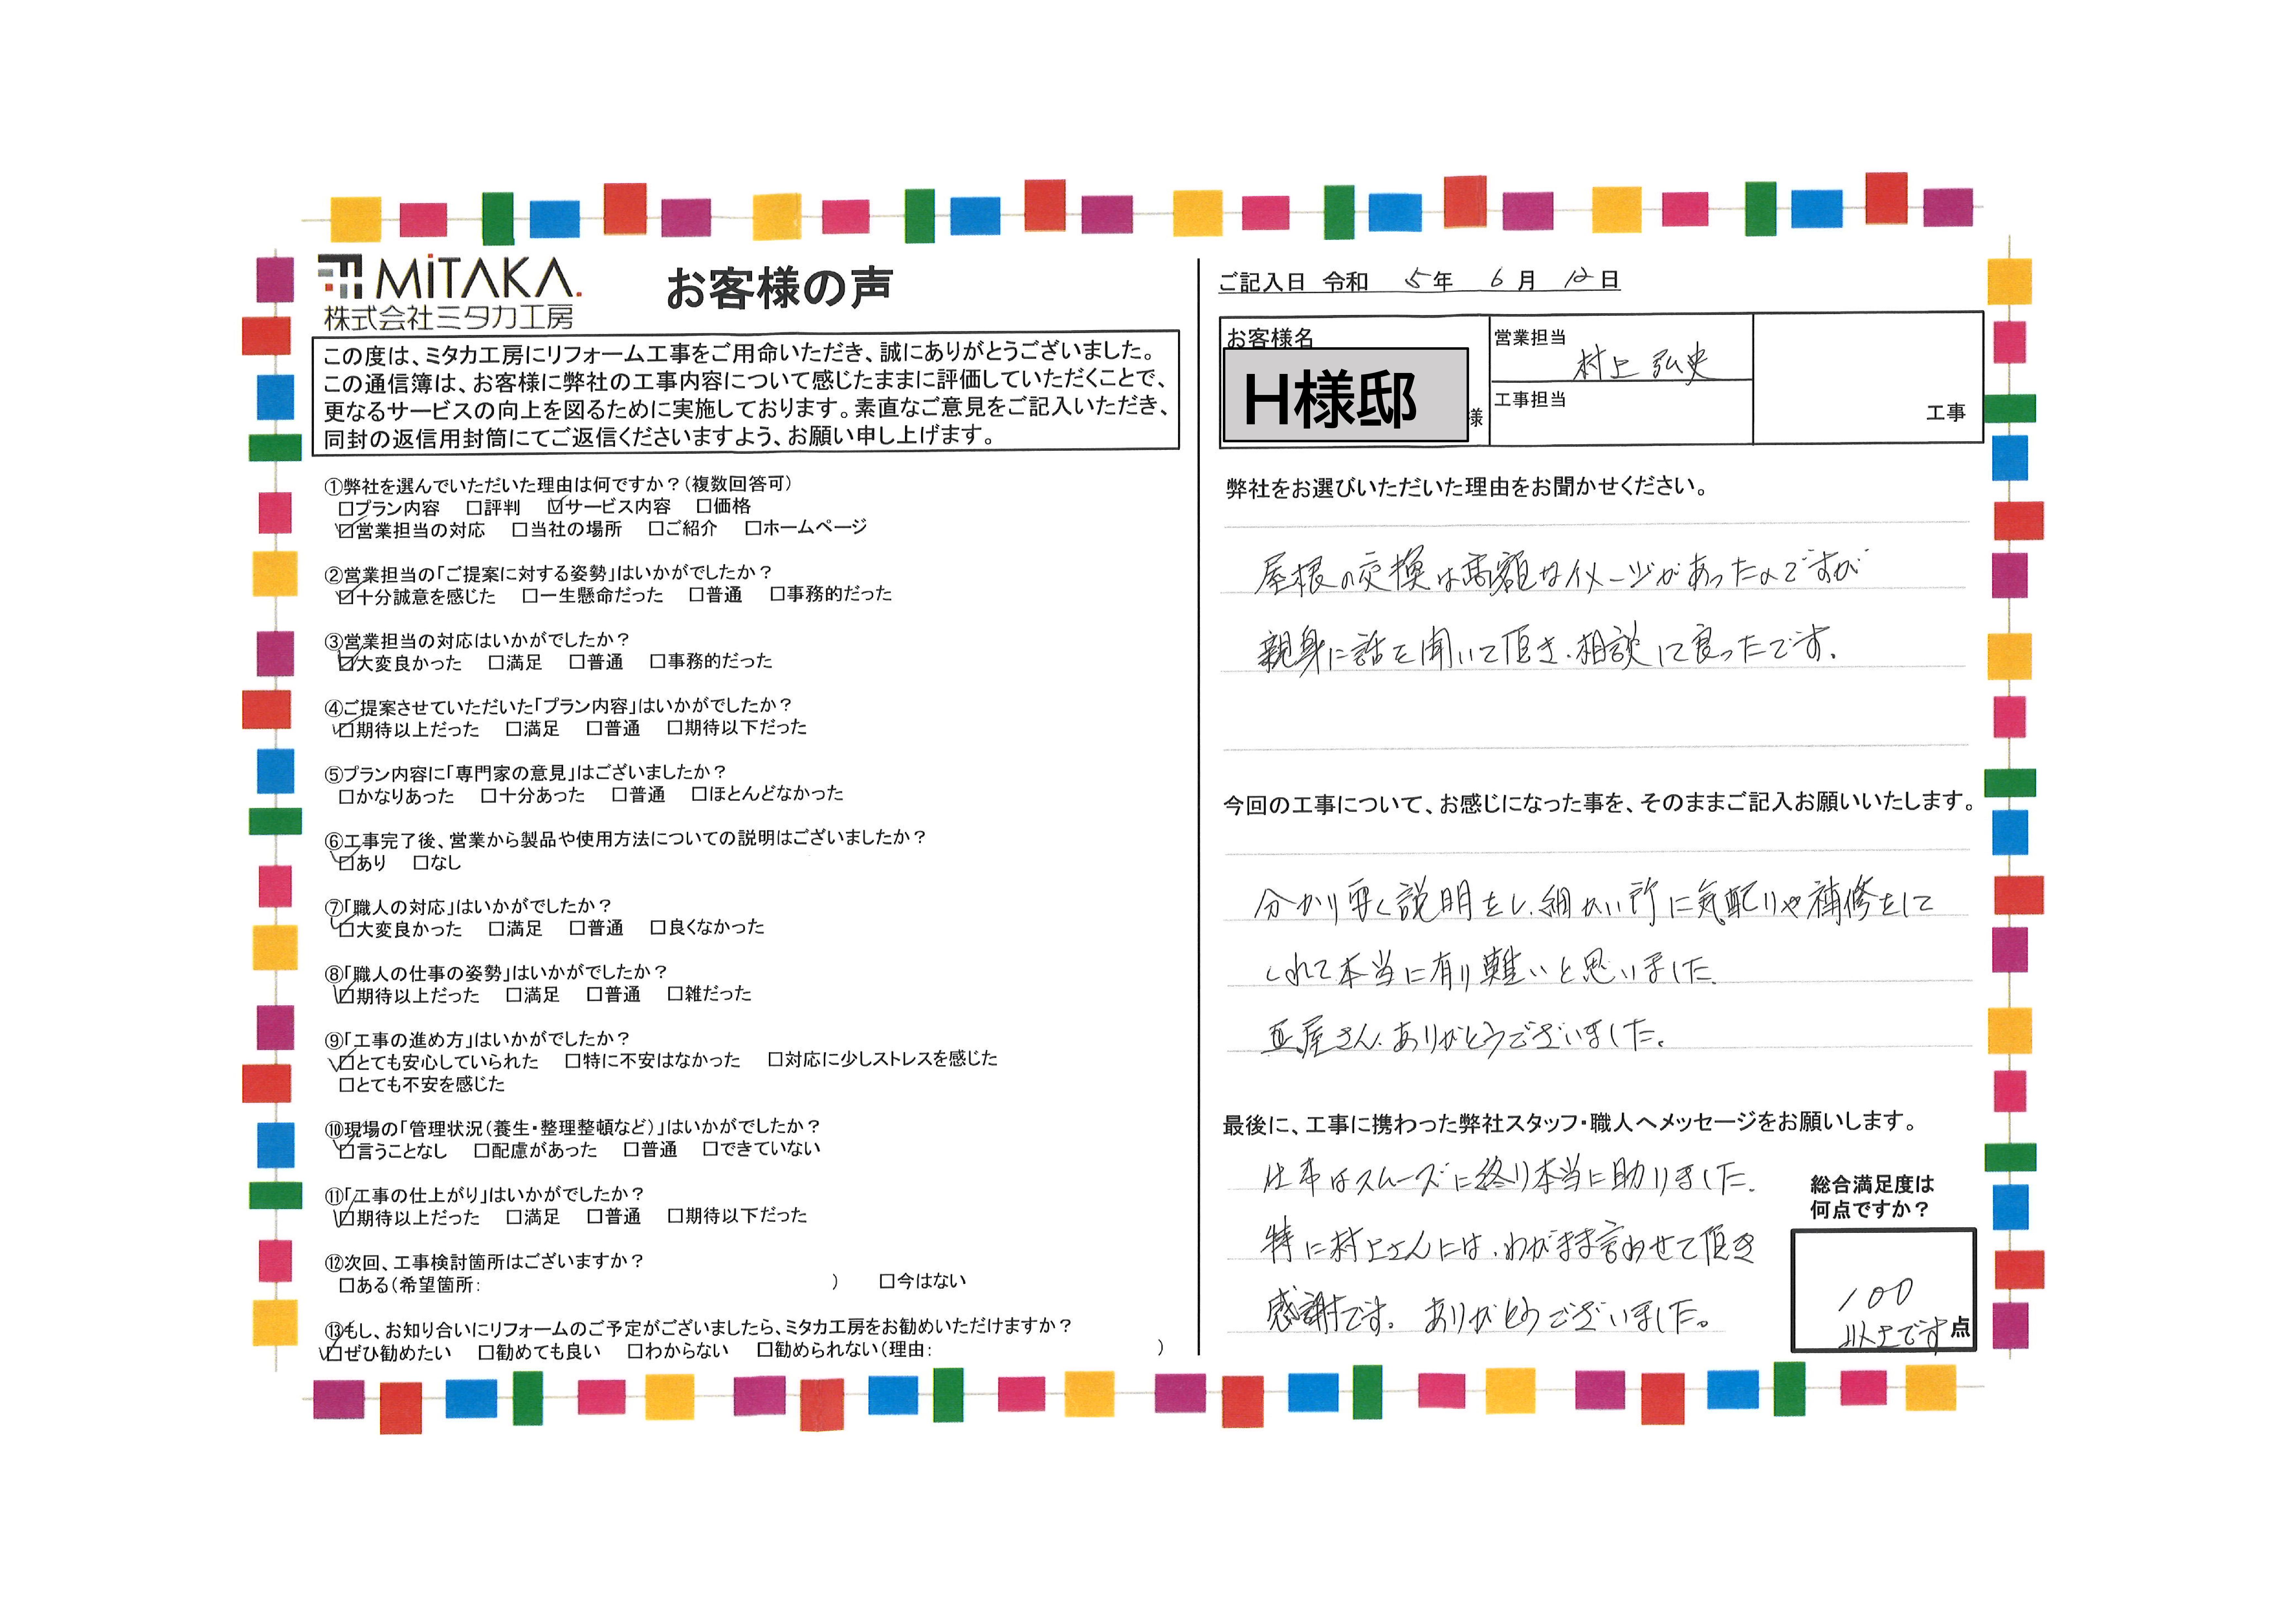 MiTAKA.
株式会社ミタカ工房
お客様の声
この度は、ミタカ工房にリフォーム工事をご用命いただき、誠にありがとうございました。
この通信簿は、お客様に弊社の工事内容について感じたままに評価していただくことで、
更なるサービスの向上を図るために実施しております。素直なご意見をご記入いただき、
同封の返信用封筒にてご返信くださいますよう、お願い申し上げます。
①弊社を選んでいただいた理由は何ですか？(複数回答可)
□プラン内容 □評判 ☑サービス内容 □価格
☑営業担当の対応 □当社の場所 □ご紹介 □ホームページ
②営業担当の「ご提案に対する姿勢」はいかがでしたか？
☑十分誠意を感じた □一生懸命だった □普通 □事務的だった
③営業担当の対応はいかがでしたか？
☑大変良かった □満足 □普通 □事務的だった
④ご提案させていただいた「プラン内容」はいかがでしたか？
☑期待以上だった □満足 □普通 □期待以下だった
⑤プラン内容に「専門家の意見」はございましたか？
□かなりあった □十分あった □普通 □ほとんどなかった
⑥工事完了後、営業から製品や使用方法についての説明はございましたか？
☑あり □なし
⑦「職人の対応」はいかがでしたか？
☑大変良かった □満足 □普通 □良くなかった
⑧「職人の仕事の姿勢」はいかがでしたか？
☑期待以上だった □満足 □普通 □雑だった
⑨「工事の進め方」はいかがでしたか？
☑とても安心していられた □特に不安はなかった □対応に少しストレスを感じた
□とても不安を感じた
⑩現場の「管理状況(養生・整理整頓など)」はいかがでしたか？
☑言うことなし □配慮があった □普通 □できていない
⑪「工事の仕上がり」はいかがでしたか？
☑期待以上だった □満足 □普通 □期待以下だった
⑫次回、工事検討箇所はございますか？
□ある(希望箇所: ) □今はない
⑬もし、お知り合いにリフォームのご予定がございましたら、ミタカ工房をお勧めいただけますか？
☑ぜひ勧めたい □勧めても良い □わからない □勧められない(理由: )
ご記入日 令和 5年 6月 12日
お客様名
H様邸 様
営業担当
村上 弘史
工事担当
工事
弊社をお選びいただいた理由をお聞かせください。
屋根の交換は高額なイメージがあったのですが
親身に話を聞いて頂き、相談して良ったです。
今回の工事について、お感じになった事を、そのままご記入お願いいたします。
分かり安く説明をし、細かい所に気配りや補修をして
くれて本当に有り難いと思いました。
瓦屋さん、ありがとうございました。
最後に、工事に携わった弊社スタッフ・職人へメッセージをお願いします。
仕事はスムーズに終り本当に助りました。
特に村上さんには、わがまま言わせて頂き
感謝です。ありがとうございました。
総合満足度は
何点ですか？
100
以上です 点